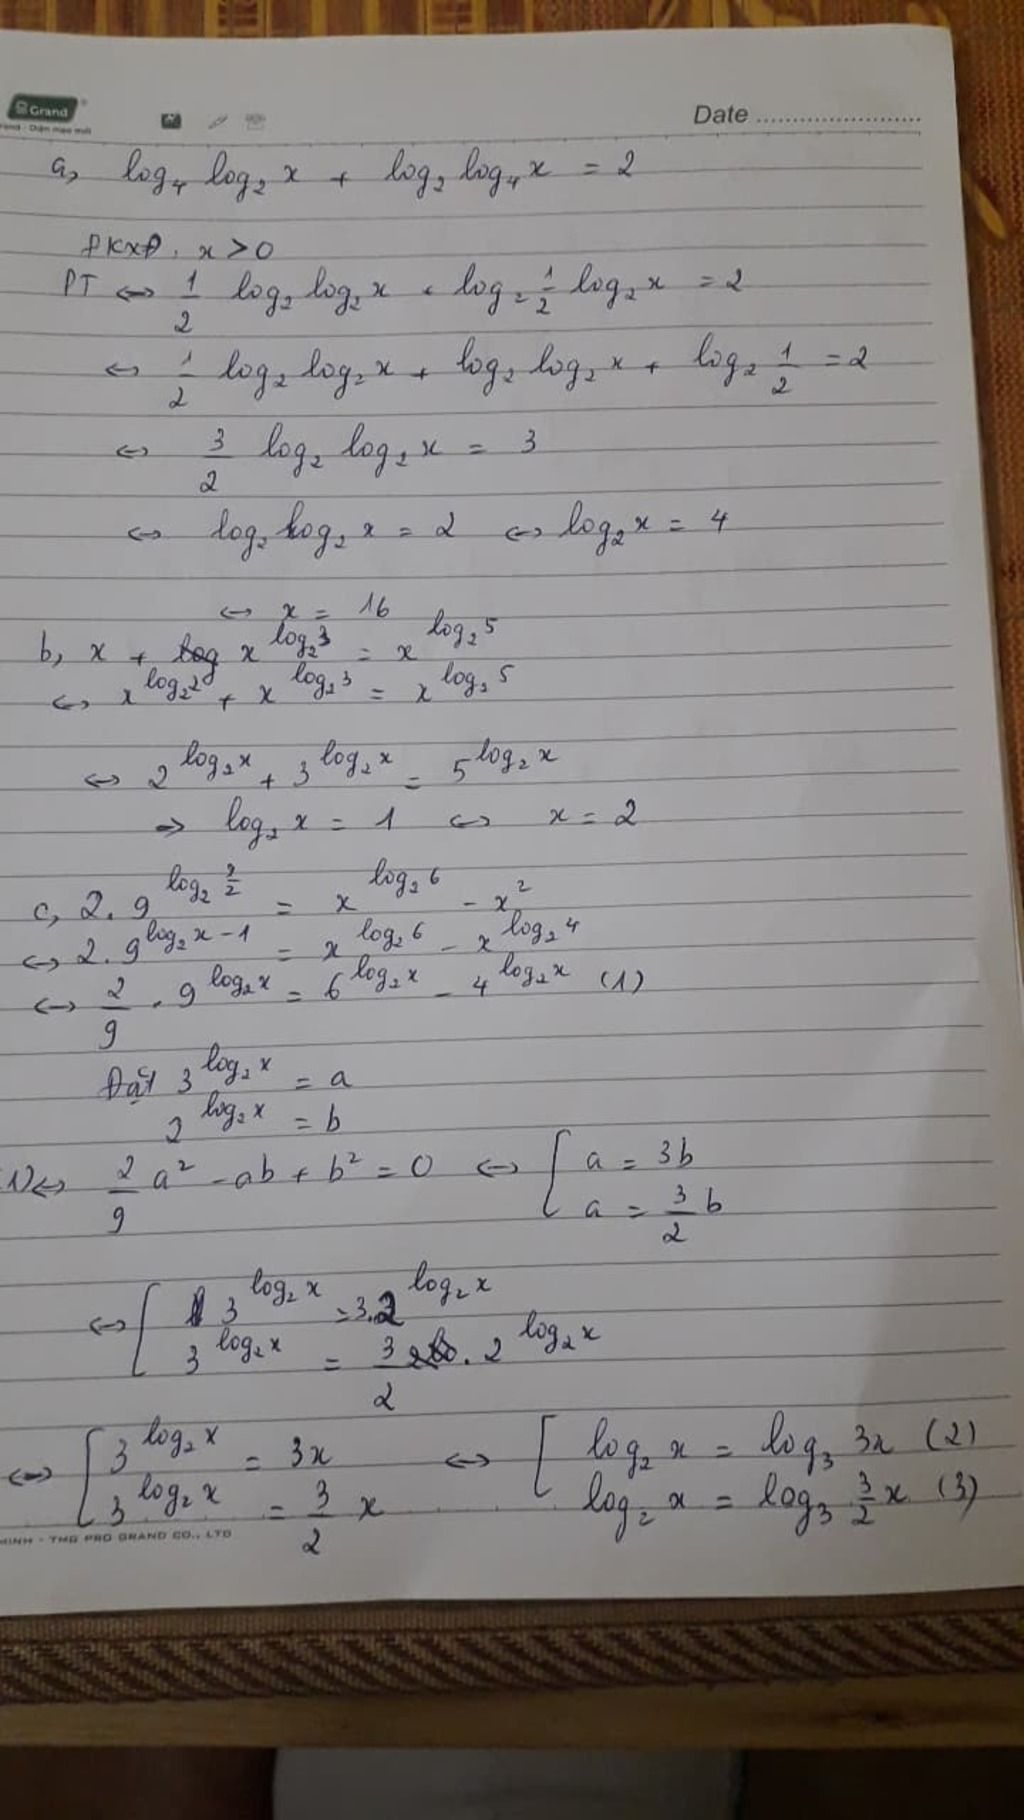 Grand
Date ........................
a, log₄ log₂ x + log₂ log₄ x = 2
ĐKXĐ. x > 0
PT ⇔ 1/2 log₂ log₂ x + log₂ 1/2 log₂ x = 2
⇔ 1/2 log₂ log₂ x + log₂ log₂ x + log₂ 1/2 = 2
⇔ 3/2 log₂ log₂ x = 3
⇔ log₂ log₂ x = 2 ⇔ log₂ x = 4
⇔ x = 16
b, x + x^(log₂ 3) = x^(log₂ 5)
⇔ x^(log₂ 2) + x^(log₂ 3) = x^(log₂ 5)
⇔ 2^(log₂ x) + 3^(log₂ x) = 5^(log₂ x)
⇒ log₂ x = 1 ⇔ x = 2
c, 2. 9^(log₂ x/2) = x^(log₂ 6) - x²
⇔ 2. 9^(log₂ x - 1) = x^(log₂ 6) - x^(log₂ 4)
⇔ 2/9 . 9^(log₂ x) = 6^(log₂ x) - 4^(log₂ x) (1)
Đặt 3^(log₂ x) = a
2^(log₂ x) = b
(1) ⇔ 2/9 a² - ab + b² = 0 ⇔ [ a = 3b
a = 3/2 b
⇔ [ 3^(log₂ x) = 3.2^(log₂ x)
3^(log₂ x) = 3/2 . 2^(log₂ x)
⇔ [ 3^(log₂ x) = 3x ⇔ [ log₂ x = log₃ 3x (2)
3^(log₂ x) = 3/2 x log₂ x = log₃ 3/2 x (3)
MINH - TMG PRO GRAND CO., LTD